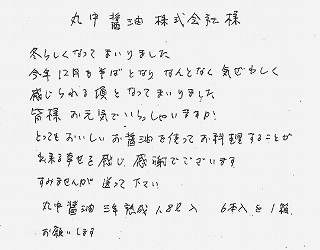 丸中醤油株式会社様
冬らしくなってまいりました
今年12月も半ばとなりなんとなく気ぜわしく
感じられる頃となってまいりました
皆様お元気でいらっしゃいますか?
とってもおいしいお醤油を使ってお料理することが
出来る幸せを感じ感謝でございます
すみませんが送って下さい
丸中醤油 三年熟成 1.8ℓ入 6本入を1箱
お願いします